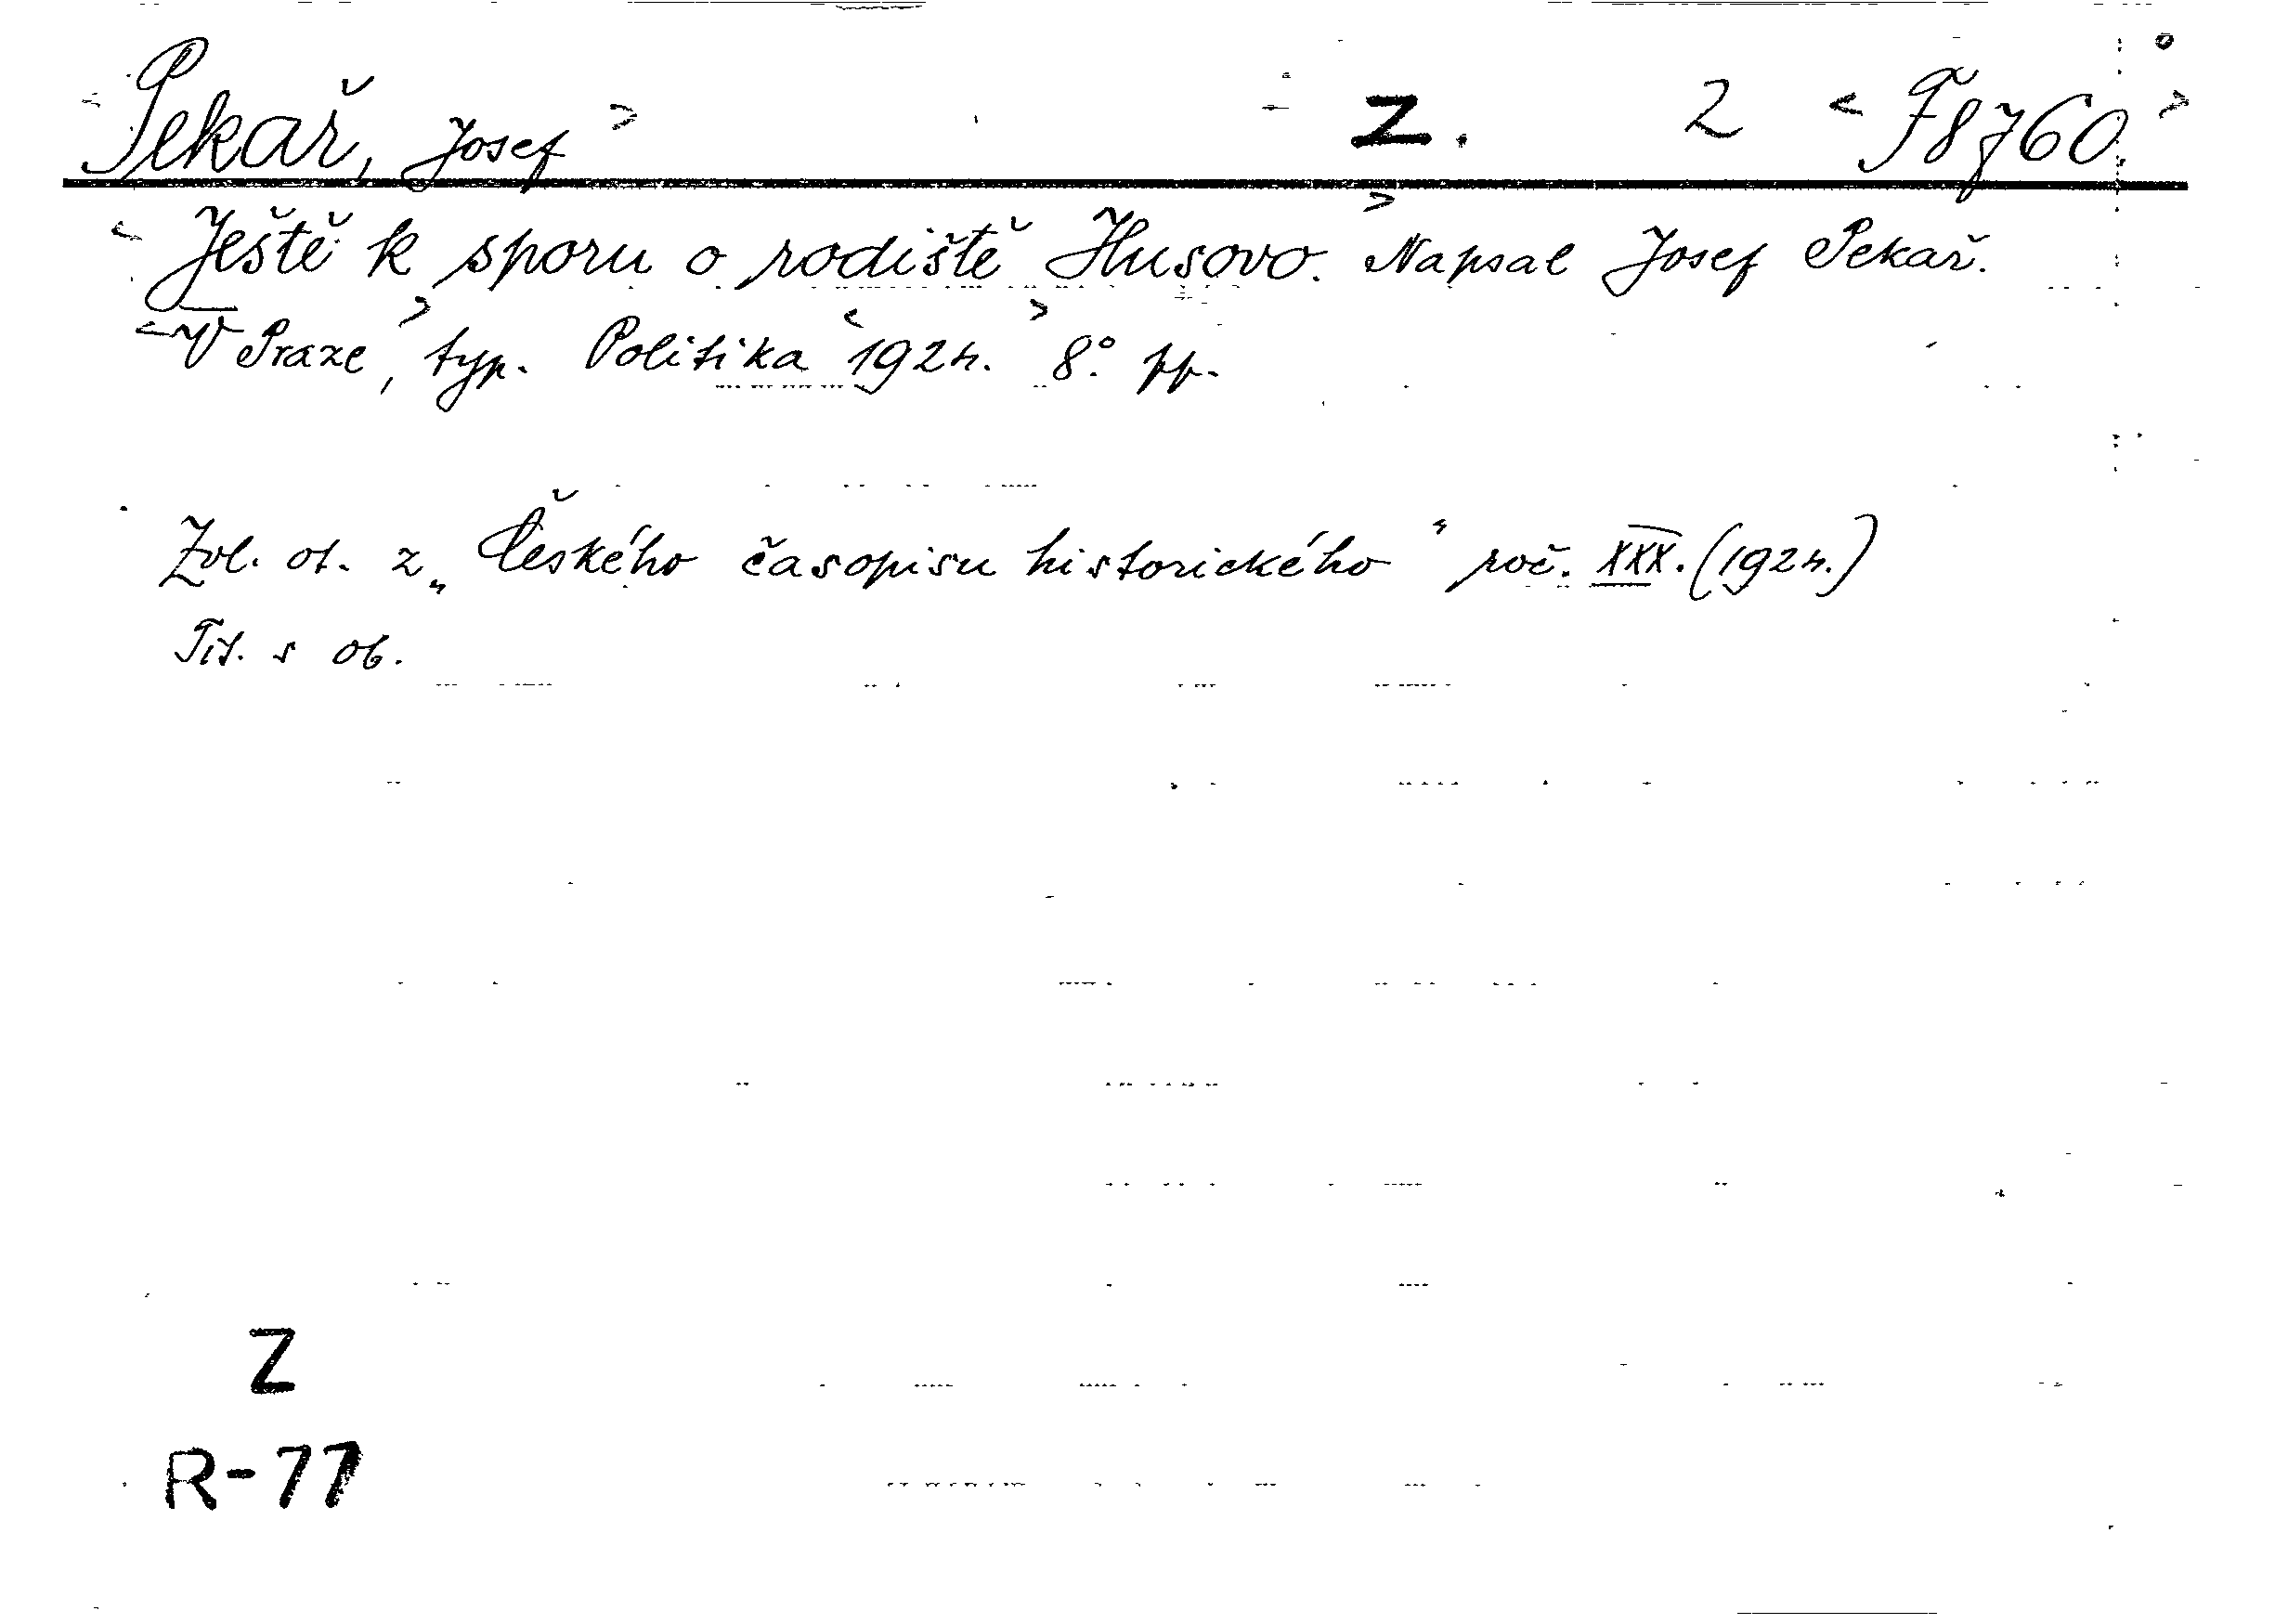 <Pekař, Josef> Z. 2 <F8760.>
<Ještě k sporu o rodiště Husovo.> Napsal Josef Pekař.
<V Praze>, typ. Politika <1924.> 8°. pp.
Zvl. ot. z „Českého časopisu historického“ roč. XXX. (1924.)
Tit. s ob.
Z
R-77